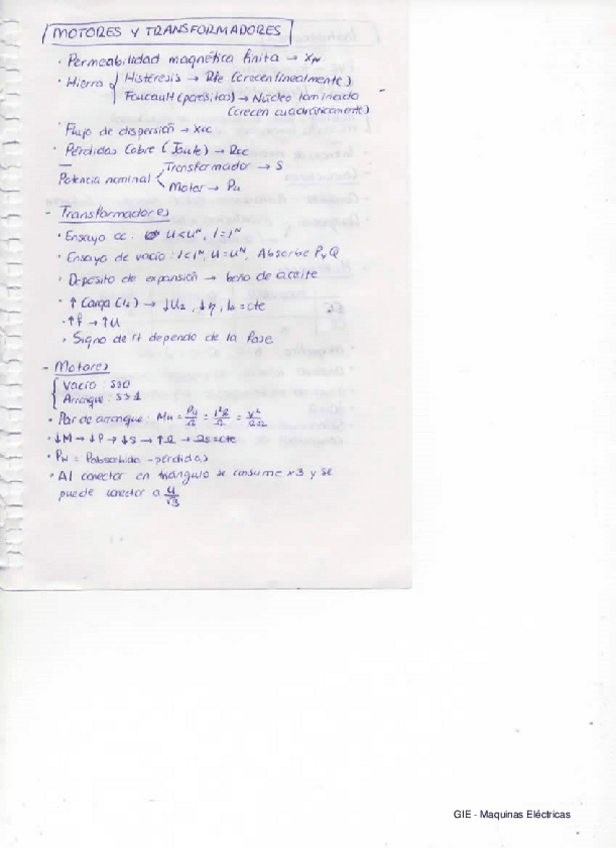 MOTORES Y TRANSFORMADORES
· Permeabilidad magnética finita → Xμ
· Hierro { Histéresis → Rfe (crecen linealmente)
Foucault (parásitas) → Núcleo laminado
(crecen cuadráticamente)
· Flujo de dispersión → Xcc
· Pérdidas Cobre (Joule) → Rcc
Potencia nominal < Transformador → S
Motor → Pu
- Transformadores
· Ensayo cc: U<Uᴺ, I=Iᴺ
· Ensayo de vacío: I<Iᴺ, U=Uᴺ, Absorbe P y Q
· Depósito de expansión → baño de aceite
· ↑ Carga → ↓U₂, ↓η, I₀=cte
· ↑f → ↑U
· Signo de rt depende de la fase
- Motores
{ Vacío: S=0
Arranque: S=1
· Par de arranque:
· ↓M → ↓P → ↓S → ↑Ω →
· Pu = Pabsorbida - pérdidas
· Al conectar en triángulo se consume x3 y se
puede conectar a U/√3
GIE - Maquinas Eléctricas